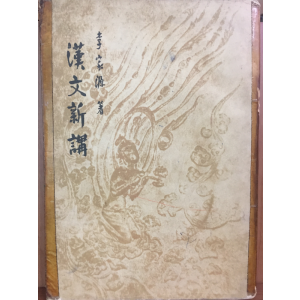 李家源 著
漢文新講